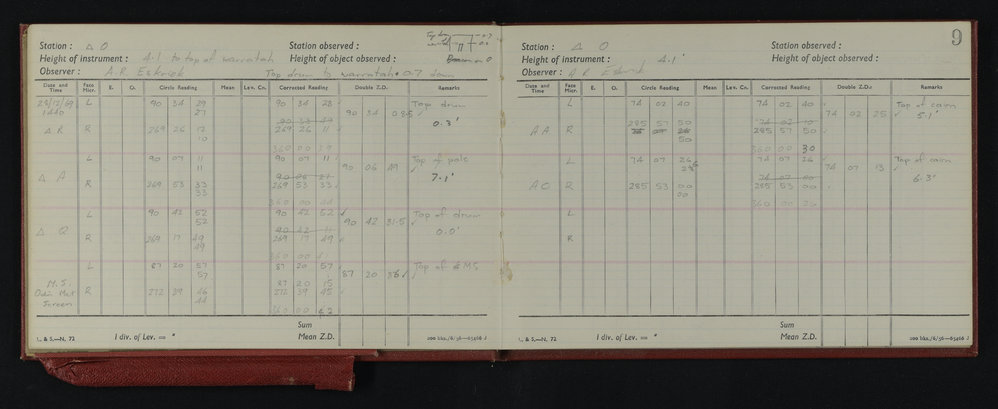 Station : △ O
Station observed :
Top drum 0.7
Height of instrument : 4.1 to top of warratah
Height of object observed :
Observer : A.R. Eskrick
Top drum to warratah 0.7 down
Date and Time Face Micr. E. O. Circle Reading Mean Lev. Cn. Corrected Reading Double Z.D. Remarks
23/12/69 L 90 34 29 90 34 28 Top drum
1440 27 90 34 08.5 0.3'
△ R R 269 26 12 269 26 11
10 360 00 39
L 90 07 11 90 07 11 Top of pole
11 90 06 49 7.1'
△ A
R 269 53 33 269 53 33
33 360 00 44
L 90 42 52 90 42 52 Top of drum
52 90 42 31.5 0.0'
△ Q R 269 17 49 269 17 49
49 360 00 41
L 87 20 57 87 20 57 Top of MS
57 87 20 36
M.S. 87 20 15
Oain Mat R 272 39 46 272 39 45
Screen 44 360 00 42
Sum
L. & S.—N. 72 1 div. of Lev. = " Mean Z.D. 200 bks./6/56—65466 J
9
Station : △ O
Station observed :
Height of instrument : 4.1'
Height of object observed :
Observer : A R Eskrick
Date and Time Face Micr. E. O. Circle Reading Mean Lev. Cn. Corrected Reading Double Z.D. Remarks
L 74 02 40 74 02 40 Top of cairn
40 74 02 25 5.1'
A A R 285 57 50 285 57 50
50 360 00 30
L 74 07 26 74 07 26 Top of cairn
74 07 13 6.3'
A C R 285 53 00 285 53 00
00 360 00 26
L
R
Sum
L. & S.—N. 72 1 div. of Lev. = " Mean Z.D. 200 bks./6/56—65466 J